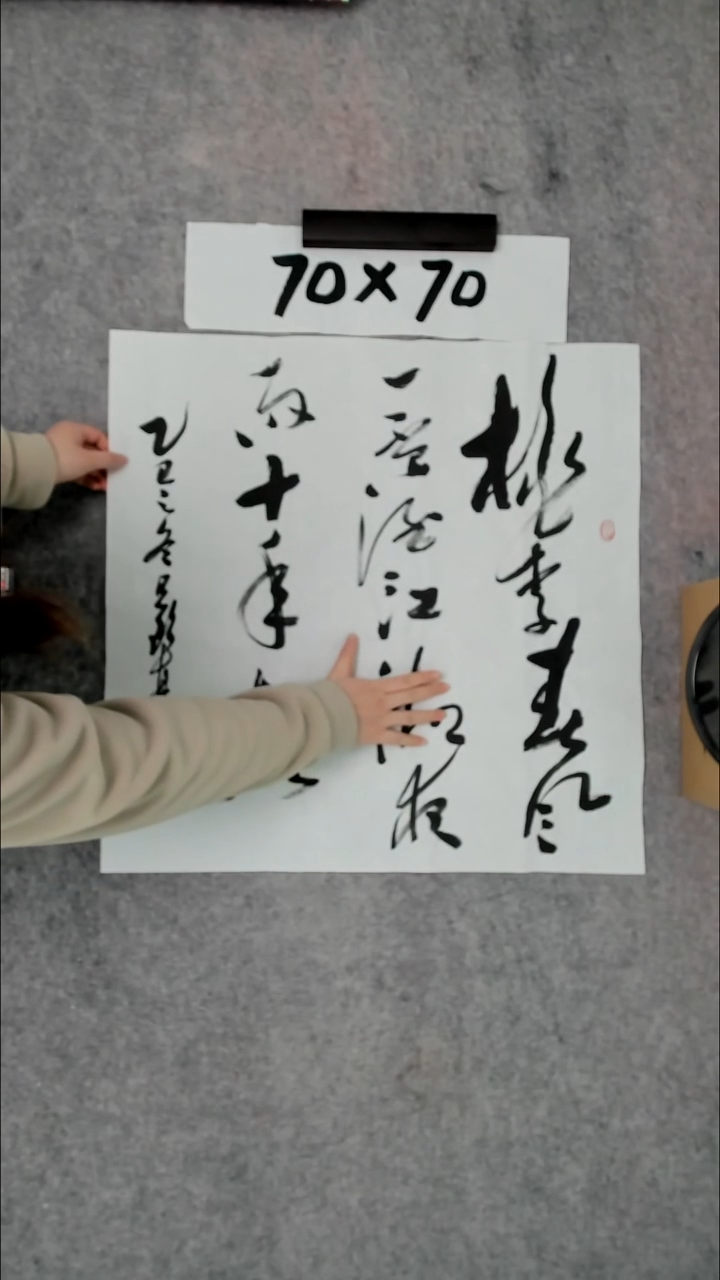 70×70
桃李春风
一杯酒江湖夜
雨十年
乙巳之冬